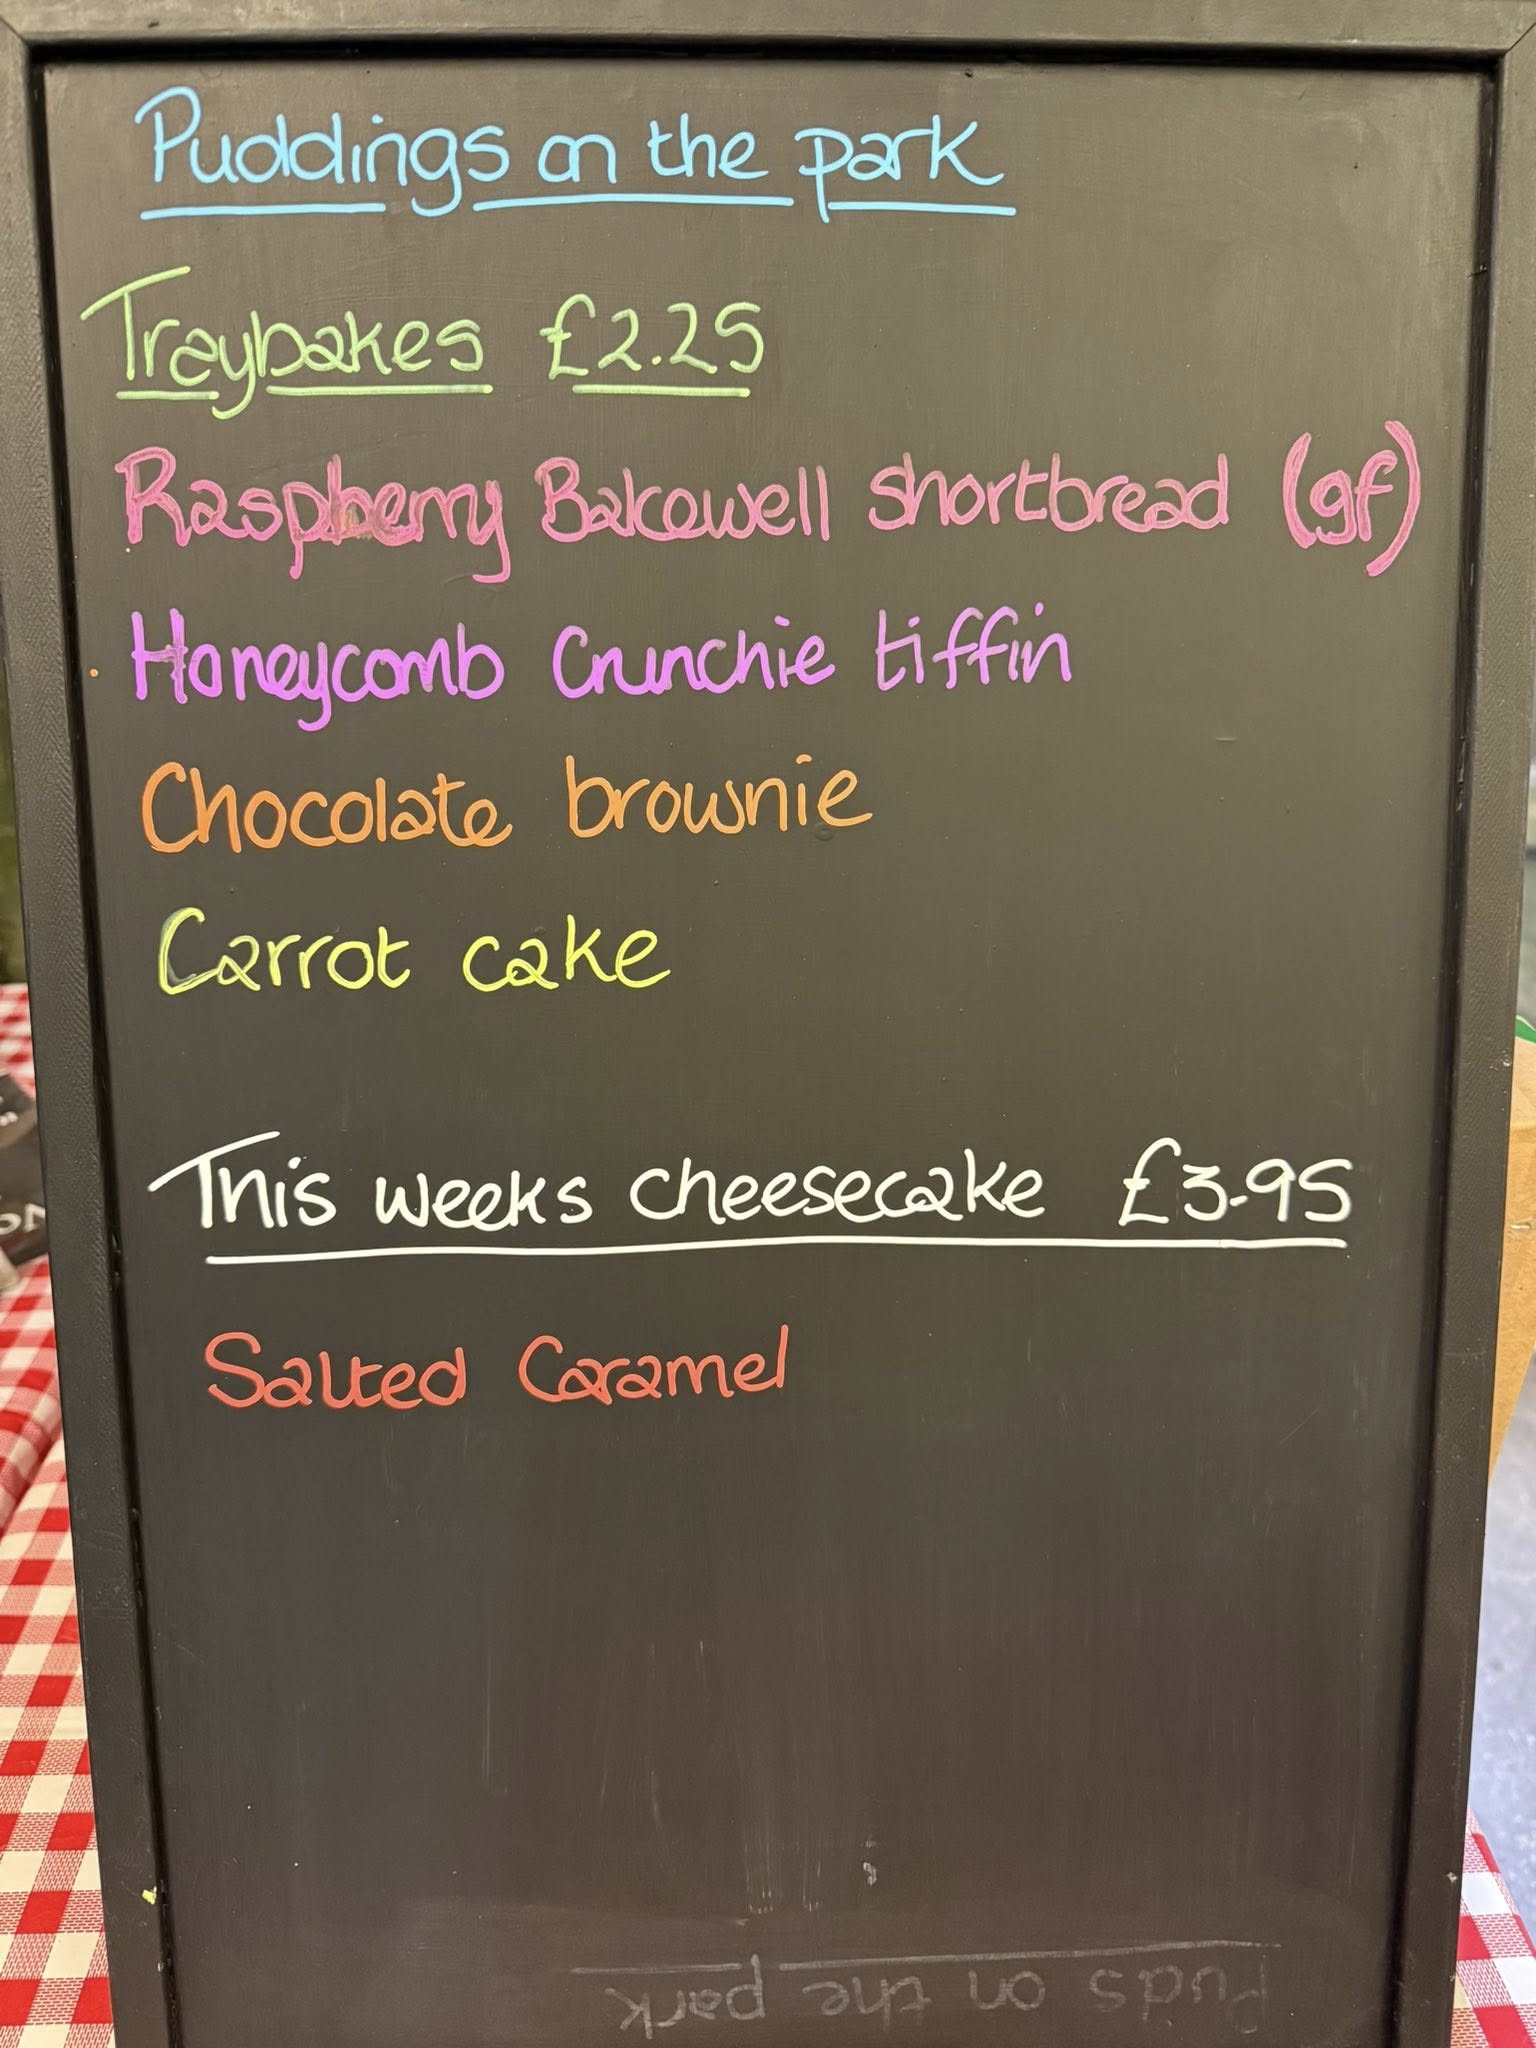 Puddings on the park
Traybakes £2.25
Raspberry Bakewell shortbread (gf)
Honeycomb Crunchie tiffin
Chocolate brownie
Carrot cake
This weeks cheesecake £3.95
Salted Caramel
Puds on the park